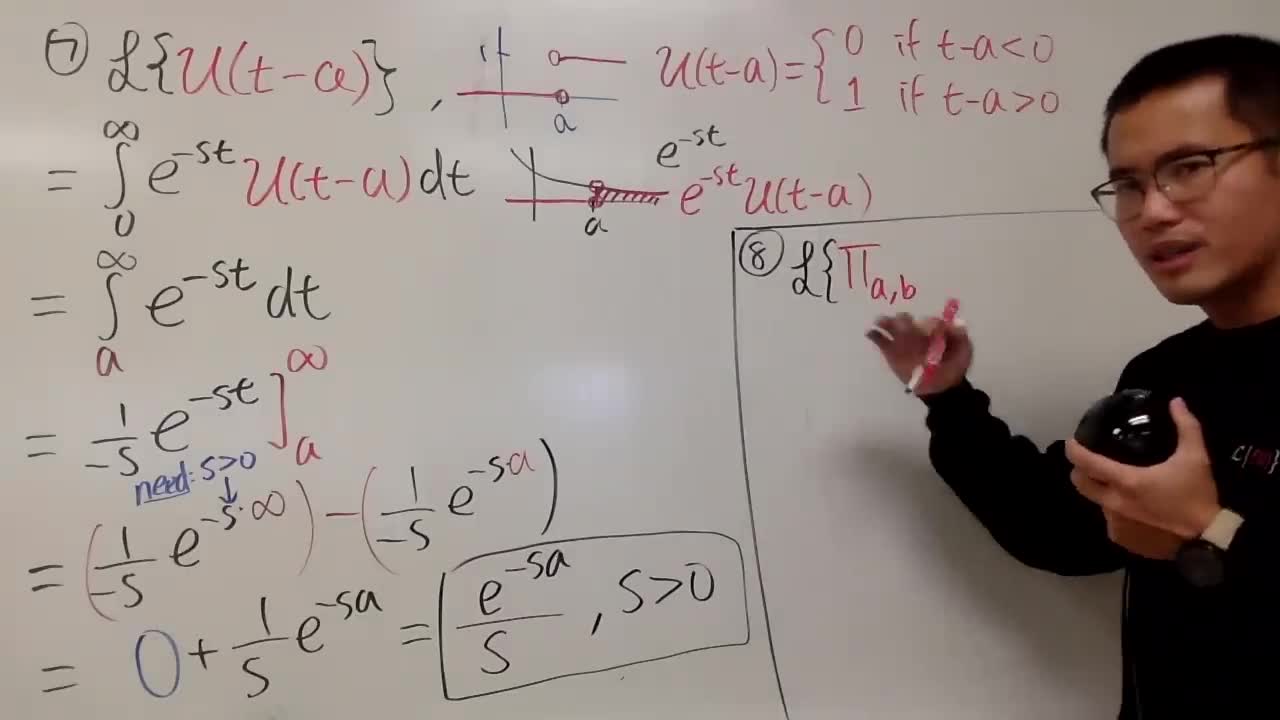 ⑦ ℒ{U(t-a)}, a U(t-a) = { 0 if t-a<0
1 if t-a>0
= ∫₀^∞ e^{-st} U(t-a) dt a e^{-st}
e^{-st} U(t-a)
= ∫ₐ^∞ e^{-st} dt
= 1/-s e^{-st} ]ₐ^∞
need: s>0
= (1/-s e^{-s·∞}) - (1/-s e^{-sa})
= 0 + 1/s e^{-sa} = e^{-sa}/s, s>0
⑧ ℒ{Π_{a,b}